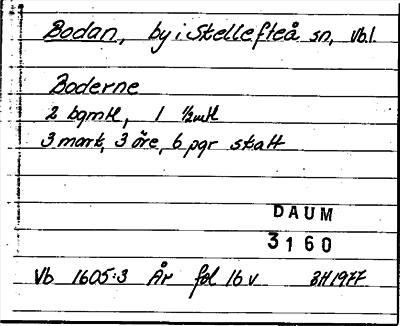 Bodan, by i Skellefteå sn, Vbl.
Boderne
2 bgmtl, 1 ½mtl
3 mark, 3 öre, 6 pgr skatt
DAUM
3160
Vb 1605:3 År fol 16 v BH 1977